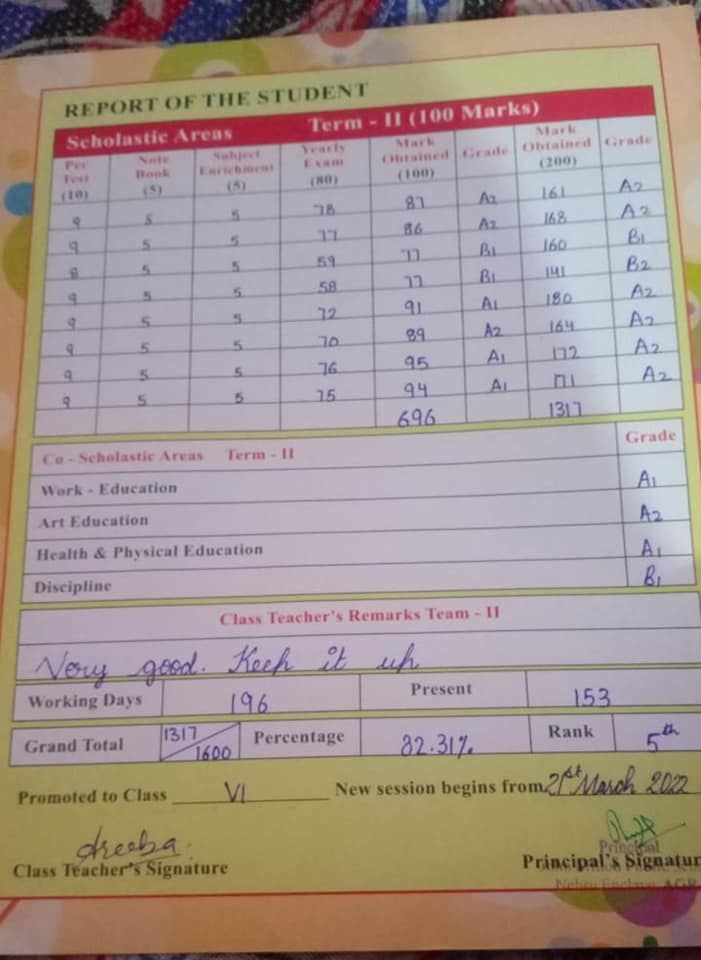 REPORT OF THE STUDENT
Scholastic Areas Term - II (100 Marks)
Per Test (10) Note Book (5) Subject Enrichment (5) Yearly Exam (80) Mark Obtained (100) Grade Mark Obtained (200) Grade
9 5 5 78 87 A2 161 A2
9 5 5 77 86 A2 168 A2
8 5 5 59 77 B1 160 B1
9 5 5 58 77 B1 141 B2
9 5 5 72 91 A1 180 A2
9 5 5 70 89 A2 164 A2
9 5 5 76 95 A1 172 A2
9 5 5 75 94 A1 171 A2
696 1317
Co - Scholastic Areas Term - II Grade
Work - Education A1
Art Education A2
Health & Physical Education A1
Discipline B1
Class Teacher's Remarks Team - II
Very good. Keep it up
Working Days 196 Present 153
Grand Total 1317/1600 Percentage 82.31% Rank 5th
Promoted to Class VI New session begins from 21st March 2022
Principal
Class Teacher's Signature Principal's Signatur